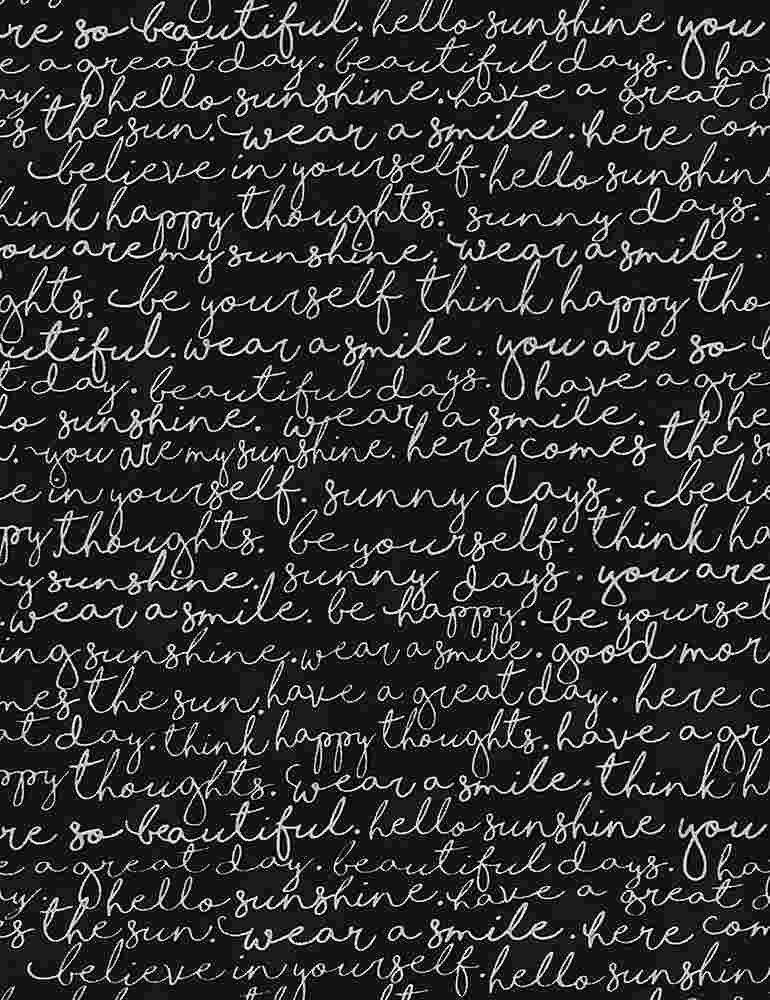 re so beautiful. hello sunshine you
e a great day. beautiful days. hav
ay. hello sunshine. have a great d
es the sun. wear a smile. here com
believe in yourself. hello sunshin
hink happy thoughts. sunny days.
ou are my sunshine. wear a smile.
ghts. be yourself think happy tho
utiful. wear a smile. you are so b
t day. beautiful days. have a gre
lo sunshine. wear a smile. he
n. you are my sunshine. here comes the su
e in yourself. sunny days. belie
py thoughts. be yourself. think ha
y sunshine. sunny days. you are
. wear a smile. be happy. be yoursel
ing sunshine. wear a smile. good mor
mes the sun. have a great day. here c
at day. think happy thoughts. have a gr
ppy thoughts. wear a smile. think h
re so beautiful. hello sunshine you
e a great day. beautiful days. hav
ay. hello sunshine. have a great d
es the sun. wear a smile. here com
believe in yourself. hello sunshin